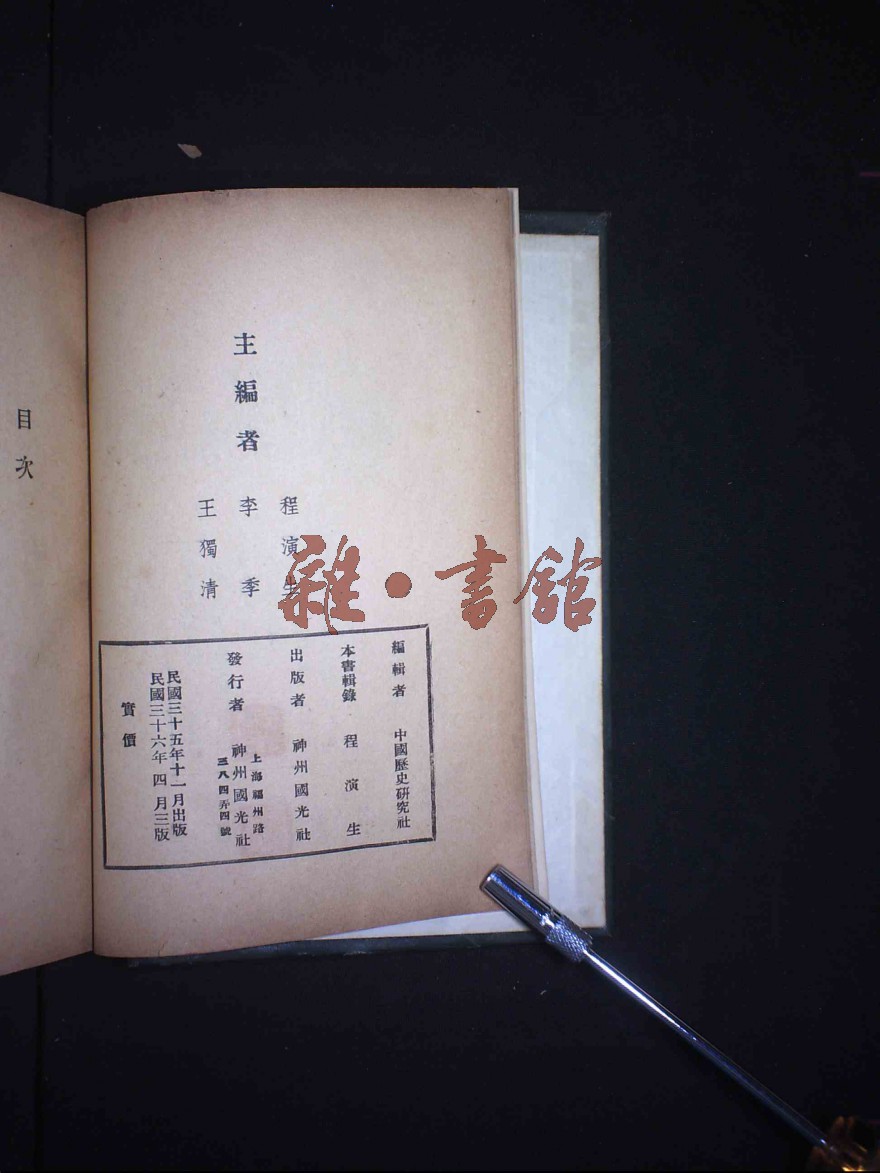 主編者
程演生
李季
王獨清
編輯者 中國歷史研究社
本書輯錄 程演生
出版者 神州國光社
發行者 神州國光社
上海福州路
三八四弄四號
民國三十五年十一月出版
民國三十六年四月三版
實價
目次
雜·書館